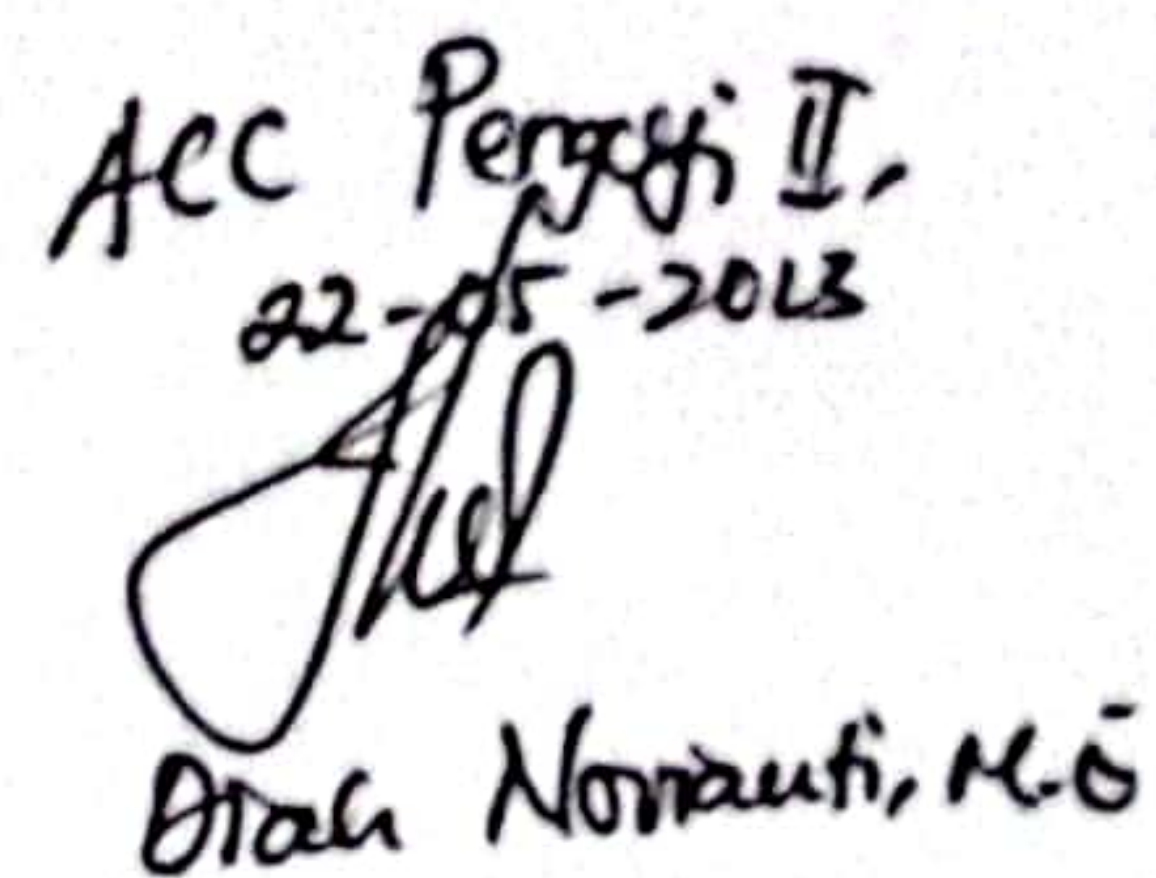 ACC Penguji II,
22-05-2023
Diah Novianti, M.